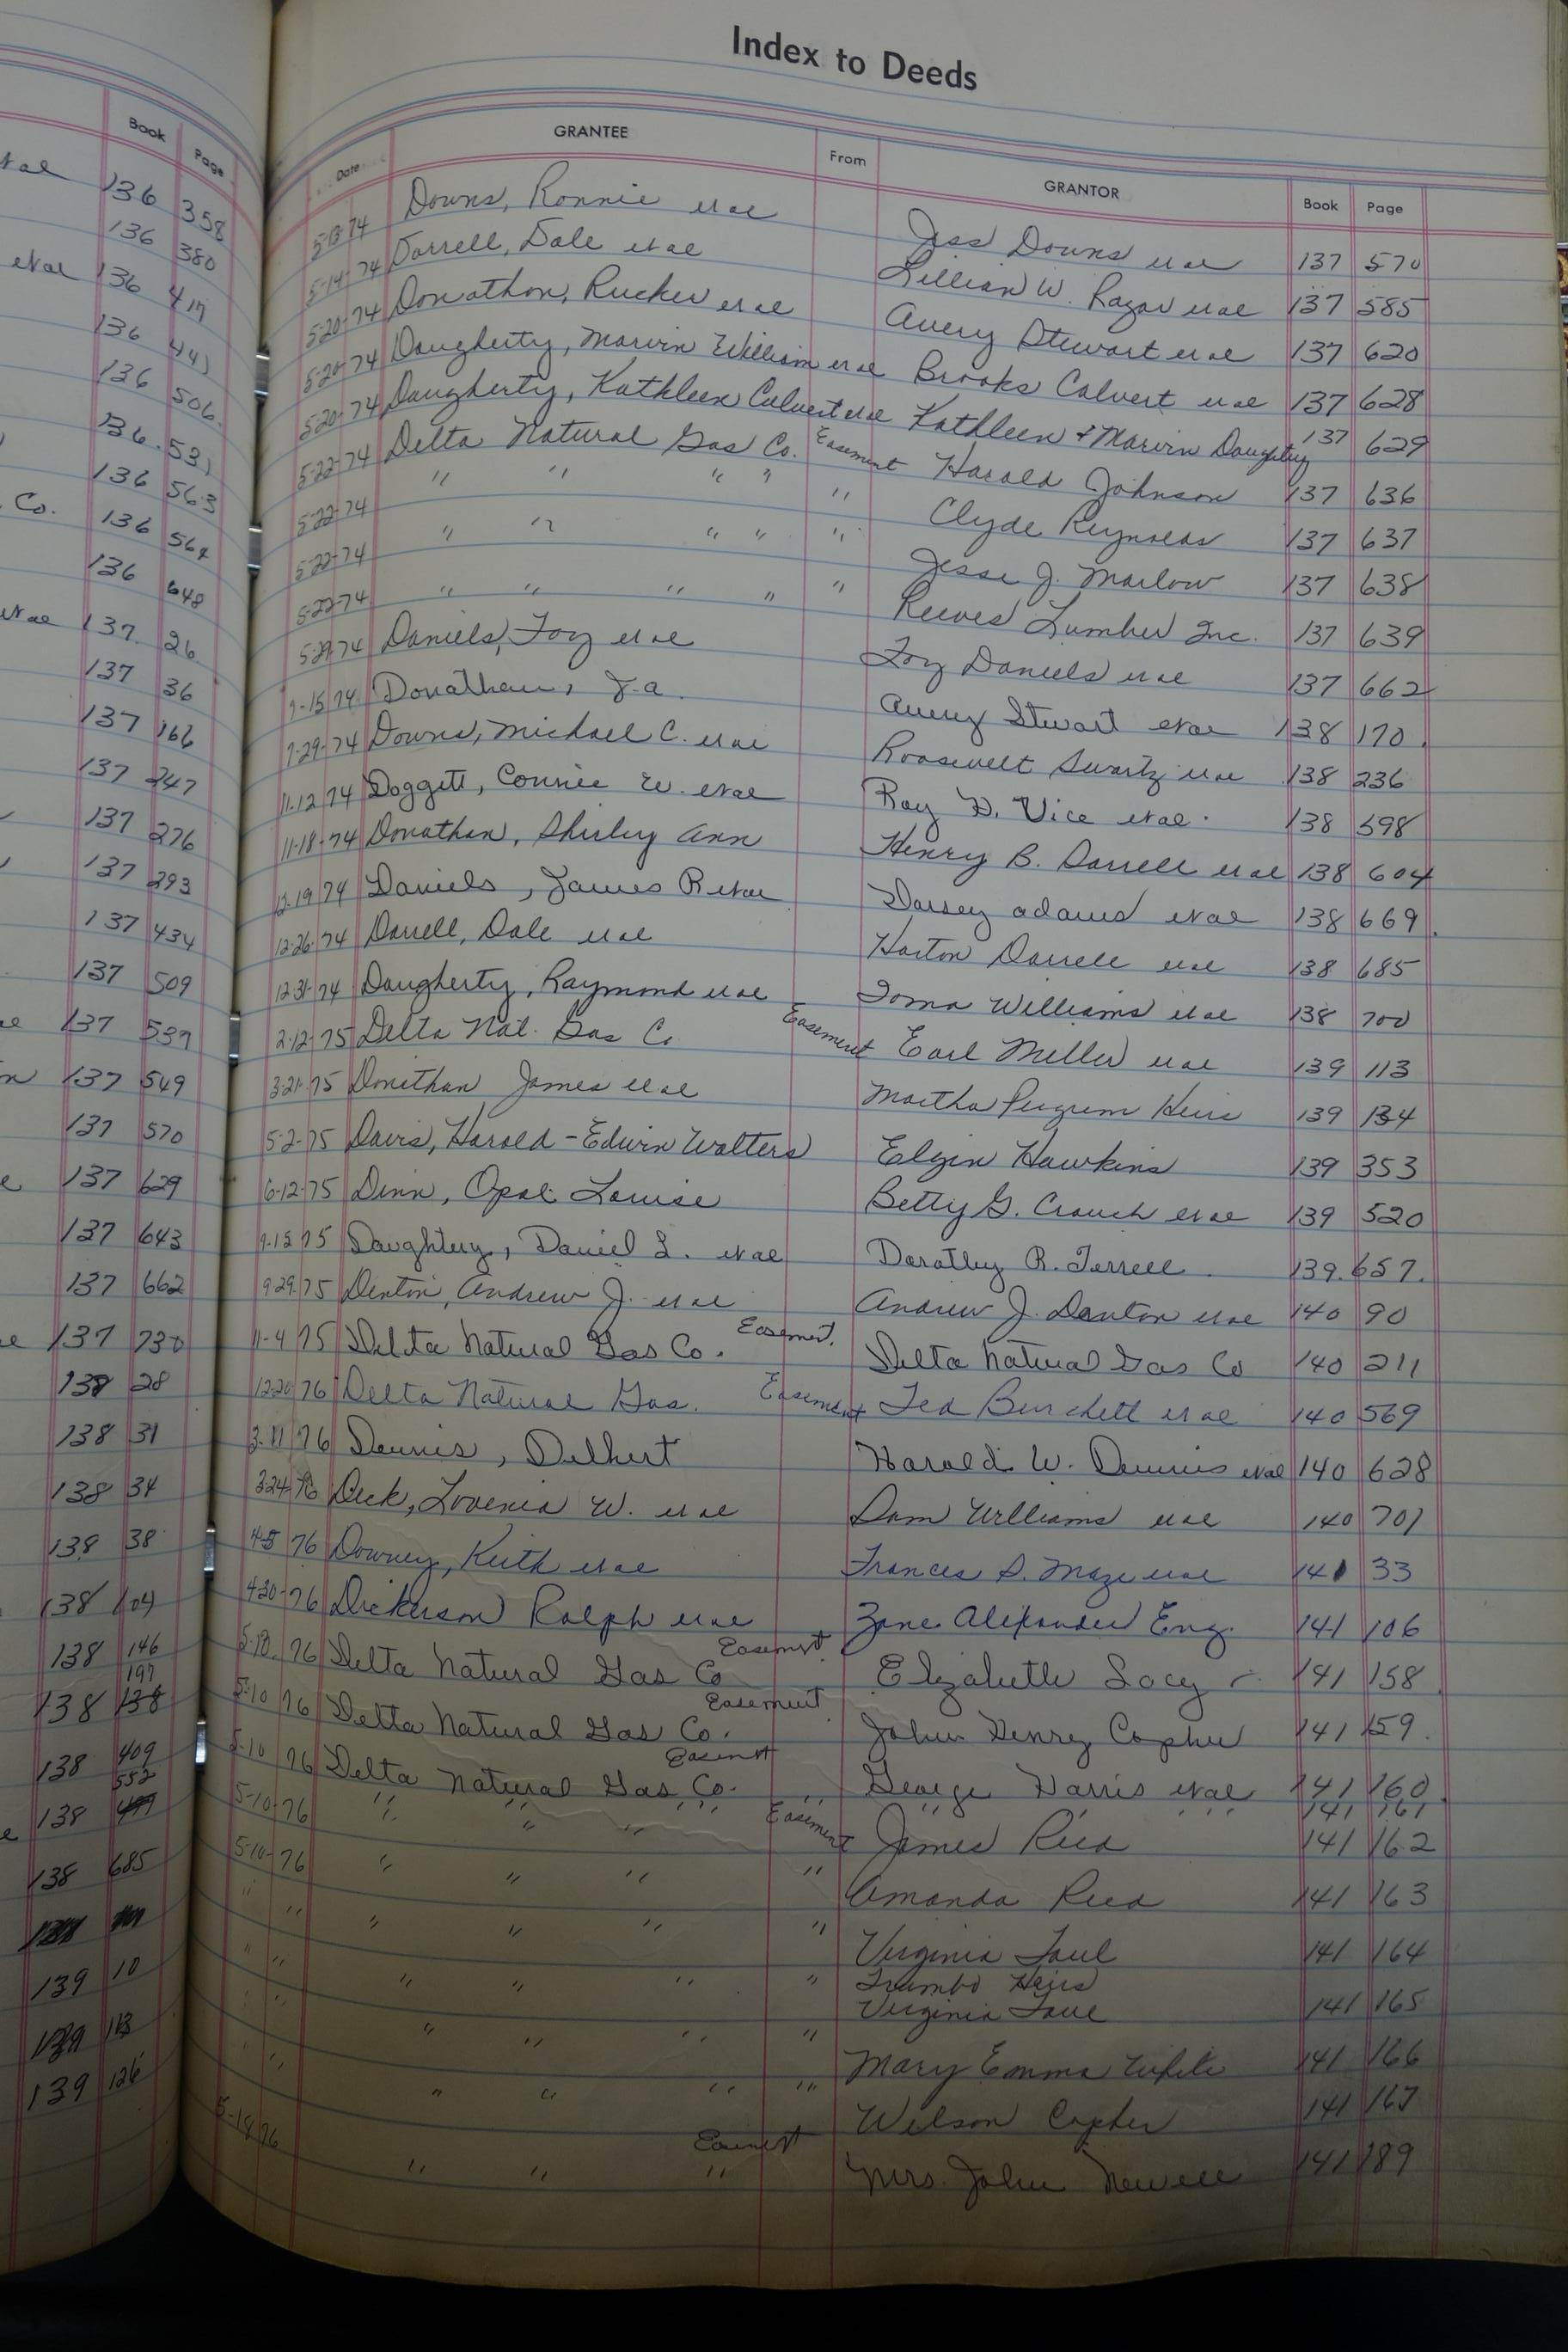 Index to Deeds
Book Page
et al 136 358
136 380
et al 136 417
136 441
136 506
136 531
136 563
Co. 136 564
136 648
et al 137 26
137 36
137 166
137 247
137 276
137 293
137 434
137 509
137 537
137 549
137 570
137 629
137 643
137 662
137 730
138 28
138 31
138 34
138 38
138 104
138 146
197
138 138
409
138 552
138
138 685
139 10
139 113
139 126
Date GRANTEE From GRANTOR Book Page
5-13-74 Downs, Ronnie et al Jess Downs et al 137 570
5-14-74 Darrell, Dale et al Lillian W. Razor et al 137 585
5-20-74 Donathon, Rucker et al Avery Stewart et al 137 620
5-20-74 Daugherty, Marvin William et al Brooks Calvert et al 137 628
5-20-74 Daugherty, Kathleen Calvert et al Kathleen & Marvin Daughtry 137 629
5-22-74 Delta Natural Gas Co. Easement Harold Johnson 137 636
5-22-74 " " " " " Clyde Reynolds 137 637
5-22-74 " " " " " Jesse J. Marlow 137 638
5-22-74 " " " " " Reeves Lumber Inc. 137 639
5-29-74 Daniels, Foy et al Foy Daniels et al 137 662
7-15 74 Donathan, J.A. Avery Stewart et al 138 170
7-29-74 Downs, Michael C. et al Roosevelt Swartz et al 138 236
11-12 74 Doggett, Connie W. et al Ray D. Vice et al 138 598
11-18-74 Donathan, Shirley Ann Henry B. Darrell et al 138 604
12-19 74 Daniels, James R et al Dorsey Adams et al 138 669
12-26-74 Darrell, Dale et al Horton Darrell et al 138 685
12-31-74 Daugherty, Raymond et al Toma Williams et al 138 700
2-12-75 Delta Nat. Gas Co Easement Earl Miller et al 139 113
3-21-75 Donithan James et al Martha Pergrem Heirs 139 134
5-2-75 Davis, Harold - Edwin Walters Elgin Hawkins 139 353
6-12-75 Dinn, Opal Louise Betty G. Crouch et al 139 520
Daughtery, Daniel L. et al Dorothy R. Terrell 139 657
9-29-75 Denton, Andrew J. et al Andrew J. Denton et al 140 90
11-4 75 Delta Natural Gas Co. Easement. Delta Natural Gas Co 140 211
76 Delta Natural Gas. Easement Ted Burchett et al 140 569
3-11 76 Dennis, Delbert Harold W. Dennis et al 140 628
3-24-76 Deck, Lovenia W. et al Dam Williams et al 140 701
4-5 76 Downey, Keith et al Frances S. Maze et al 141 33
4-30-76 Dickerson Ralph et al Zane Alexander Eng. 141 106
5-10 76 Delta Natural Gas Co Easement. Elizabeth Lacy 141 158
5-10 76 Delta Natural Gas Co. Easement John Henry Copher 141 159
5-10 76 Delta Natural Gas Co. Easement George Harris et al 141 160
" " " " " 141 161
5-10-76 Easement James Reed 141 162
5-10-76 " " " " Amanda Reed 141 163
" " " " " " Virginia Faul 141 164
" " " " " " Trumbo Heirs
Virginia Faul 141 165
" " " " " " Mary Emma White 141 166
" " " " " " Wilson Copher 141 167
5-14 76 " " " Easement Mrs. John Newell 141 189